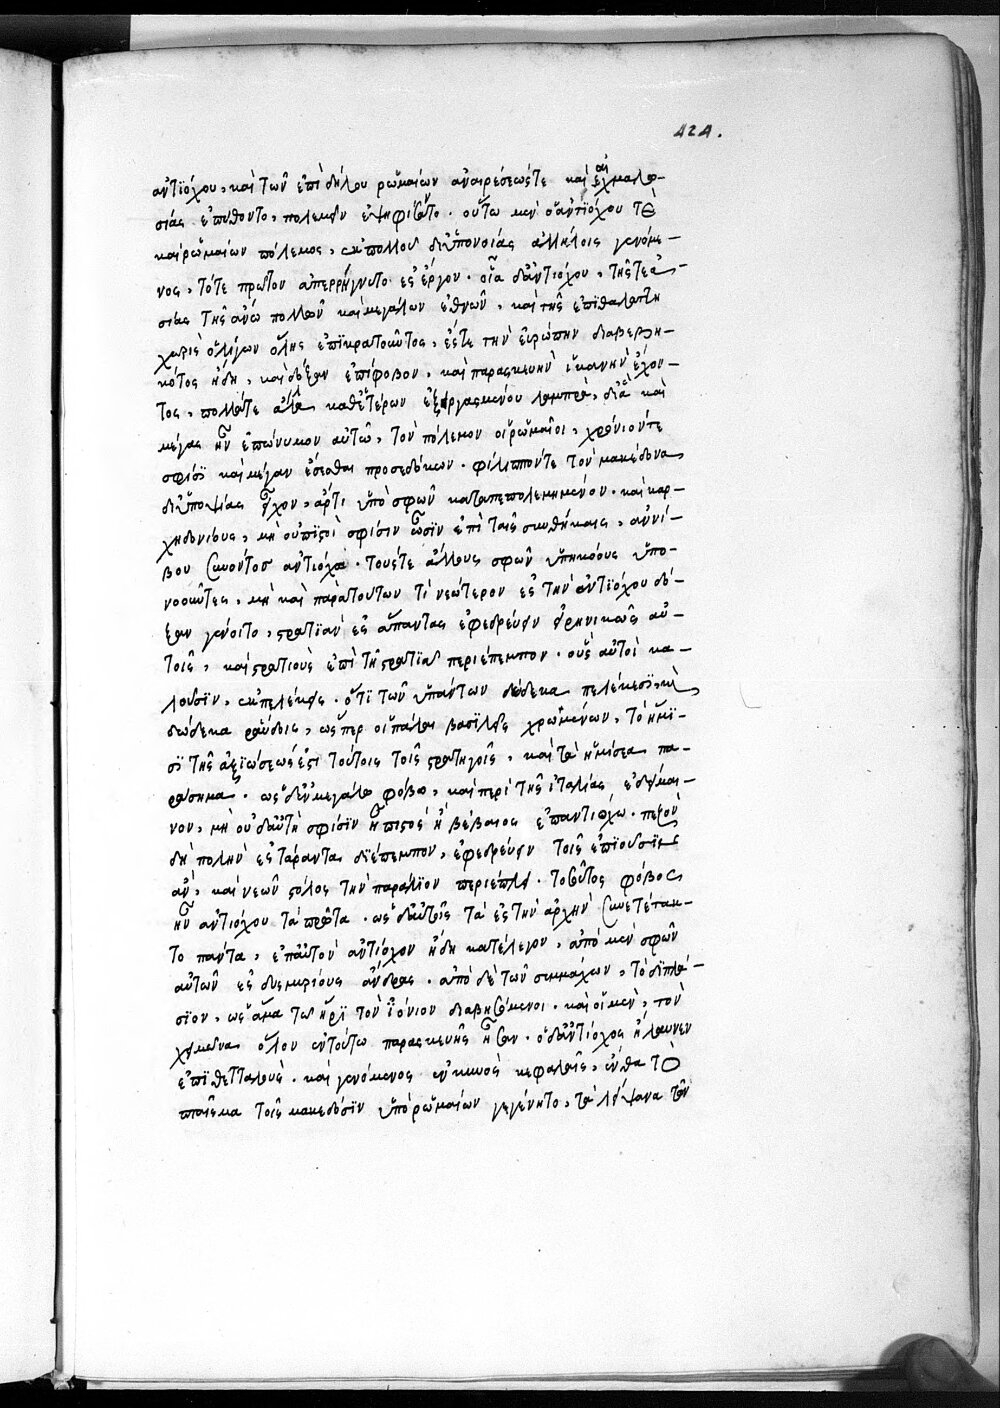 424.
ἀντϊόχου, καὶ τῶν ἐπὶ δήλου ῥωμαίων ἀναιρέσεώς τε καὶ αἰχμαλω-
σίας ἐπύθοντο, πολεμεῖν ἐψηφίζοντο. οὕτω μὲν ὁ ἀντϊόχου τὲ
καὶ ῥωμαίων πόλεμος, ἐκ πολλοῦ δι' ὑπονοίας ἀλλήλοις γενόμε-
νος, τότε πρῶτον ἀπερρήγνυτο ἐς ἔργον. οἷα δ' ἀντιόχου, τῆς τε ἀ-
σίας τῆς ἄνω πολλῶν καὶ μεγάλων ἐθνῶν, καὶ τῆς ἐπὶ θαλάττῃ
χωρὶς ὀλίγων ὅλης ἐπικρατοῦντος, ἔς τε τὴν εὐρώπην διαβεβη-
κότος ἤδη, καὶ δόξαν ἐπίφοβον, καὶ παρασκευὴν ἱκανὴν ἔχον-
τος, πολλά τε ἄλλα καθ' ἑτέρων ἐξειργασμένου λαμπρὰ, δι' ἃ καὶ
μέγας ἦν ἐπώνυμον αὐτῶ, τὸν πόλεμον οἱ ῥωμαῖοι, χρόνιόν τε
σφίσϊ καὶ μέγαν ἔσεσθαι προσεδόκων. φίλιππόν τε τὸν μακεδόνα
δι' ὑποψίας εἶχον, ἄρτι ὑπὸ σφῶν καταπεπολεμημένον. καὶ καρ-
χηδονίους, μὴ οὐ πιστοὶ σφίσιν ὦσϊν ἐπὶ ταῖς συνθήκαις, ἀννί-
βου συνόντος ἀντιόχω. τούς τε ἄλλους σφῶν ὑπηκόους ὑπο-
νοοῦντες, μὴ καὶ παρὰ τούτων τὶ νεώτερον ἐς τὴν ἀντϊόχου δό-
ξαν γένοιτο, στρατϊὰν ἐς ἅπαντας ἐφεδρεύειν εἰρηνικῶς αὐ-
τοῖς, καὶ στρατηγοὺς ἐπὶ τῆ στρατϊᾶ περιέπεμπον. οὓς αὐτοὶ κα-
λοῦσϊν, ἑξαπελέκεις. ὅτι τῶν ὑπάτων δώδεκα πελέκεσϊ, καὶ
δώδεκα ῥάβδοις, ὥσπερ οἱ πάλαι βασϊλεῖς χρωμένων, τὸ ἥμϊ-
σϊ τῆς ἀξιώσεώς ἐστι τούτοις τοῖς στρατηγοῖς, καὶ τὰ ἡμίσεα πα-
ράσημα. ὡς δ' ἐν μεγάλω φόβω, καὶ περὶ τῆς ἰταλίας ἐδείμαι-
νον, μὴ οὐδ' αὐτὴ σφίσϊν ἦ πιστὸς ἢ βέβαιος ἐπ' ἀντιόχω. πεζὸν
δὴ πολὺν ἐς τάραντα διέπεμπον, ἐφεδρεύειν τοῖς ἐπϊοῦσϊν
ἂν, καὶ νεῶν στόλος τὴν παράλϊον περιέπλει. τοσοῦτος φόβος
ἦν ἀντιόχου τὰ πρῶτα. ὡς δ' αὐτοῖς τὰ ἐς τὴν ἀρχὴν συνετέτακ-
το πάντα, ἐπ' αὐτὸν ἀντϊόχον ἤδη κατέλεγον, ἀπὸ μὲν σφῶν
αὐτῶν ἐς δισμυρίους ἄνδρας. ἀπὸ δὲ τῶν συμμάχων, τὸ διπλά-
σϊον, ὡς ἅμα τῶ ἦρϊ τὸν ἰόνιον διαβησόμενοι. καὶ οἱ μὲν, τὸν
χειμῶνα ὅλον ἐν τούτω παρασκευῆς ἦσαν. ὁ δ' ἀντίοχος ἤλαυνεν
ἐπϊ θετταλοὺς. καὶ γενόμενος ἐν κυνὸς κεφαλαῖς, ἔνθα τὸ
πταῖσμα τοῖς μακεδόσϊν ὑπὸ ῥωμαίων γεγένητο, τὰ λείψανα τῶν